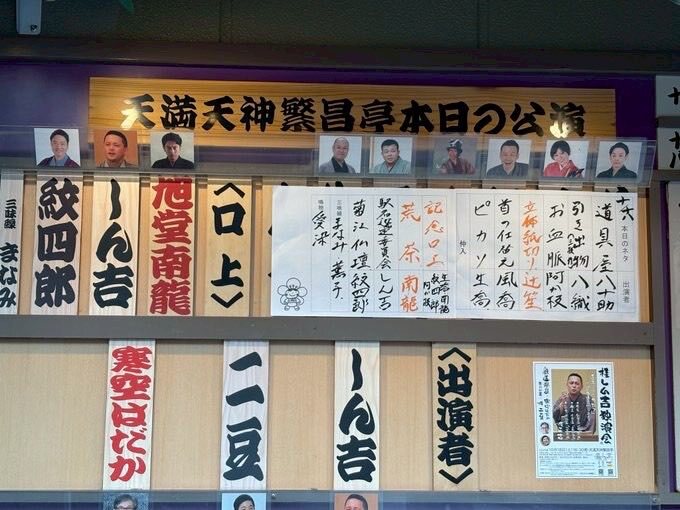 天満天神繁昌亭本日の公演
本日のネタ
出演者
道具屋 八十助
引き出物 八織
お血脈 阿か枝
立体紙切り 辻笙
首の仕替え 風喬
ピカソ 生喬
仲入
記念口上
荒茶 南龍
駅名選定委員会 しん吉
菊江仏壇 紋四郎
三味線
鳴物
〈口上〉
旭堂南龍
しん吉
紋四郎
三味線 まなみ
〈出演者〉
しん吉
二豆
寒空はだか
桂しん吉独演会